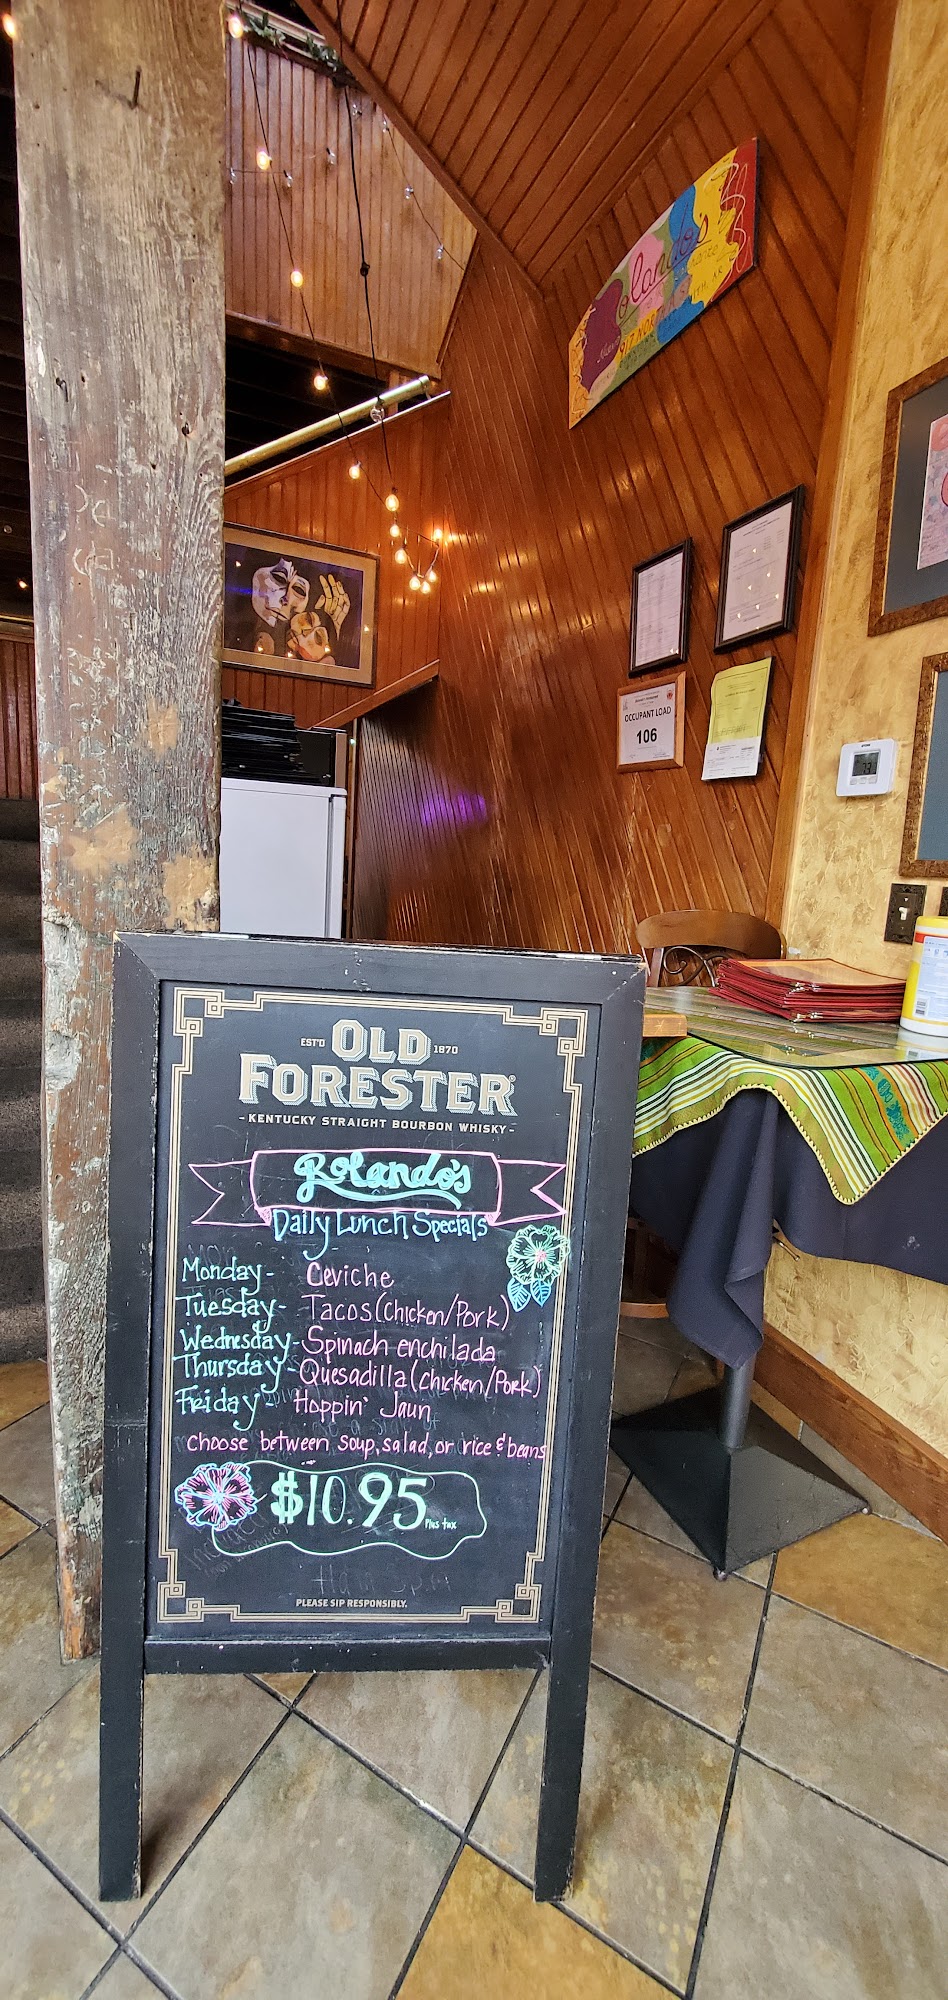 Rolando's
917 NORTH
SMITH, AR
OCCUPANT LOAD
106
73
EST'D OLD 1870
FORESTER
- KENTUCKY STRAIGHT BOURBON WHISKY -
Rolando's
Daily Lunch Specials
Monday - Ceviche
Tuesday - Tacos (Chicken/Pork)
Wednesday - Spinach enchilada
Thursday - Quesadilla (chicken/Pork)
Friday - Hoppin' Jaun
Choose between soup, salad, or rice & beans
$10.95 Plus tax
PLEASE SIP RESPONSIBLY.